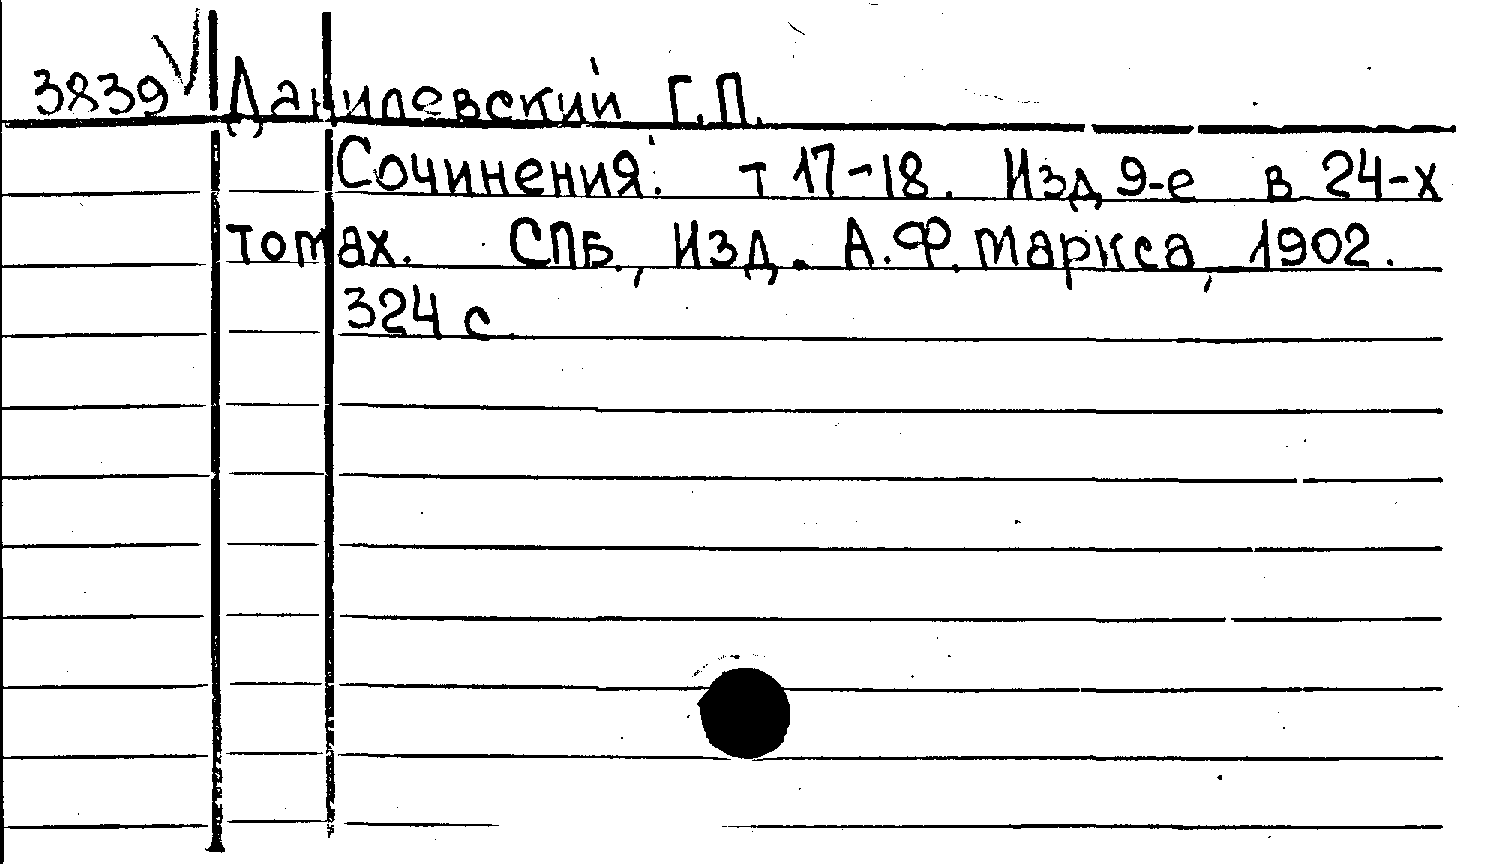 3839 V Данилевский Г.П.
Сочинения: т 17-18. Изд 9-е в 24-х
томах. СПБ., Изд. А.Ф. Маркса, 1902.
324 с.